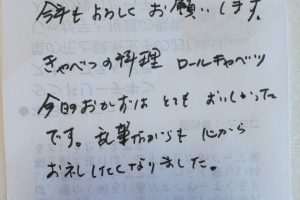 今年もよろしくお願いします。
きゃべつの料理 ロールキャベツ
今日のおかずはとてもおいしかった
です。乱筆ながらも 心から
お礼したくなりました。